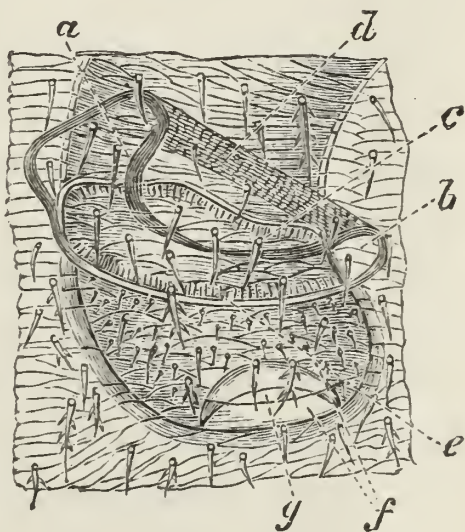 a
d
c
b
e
g
f